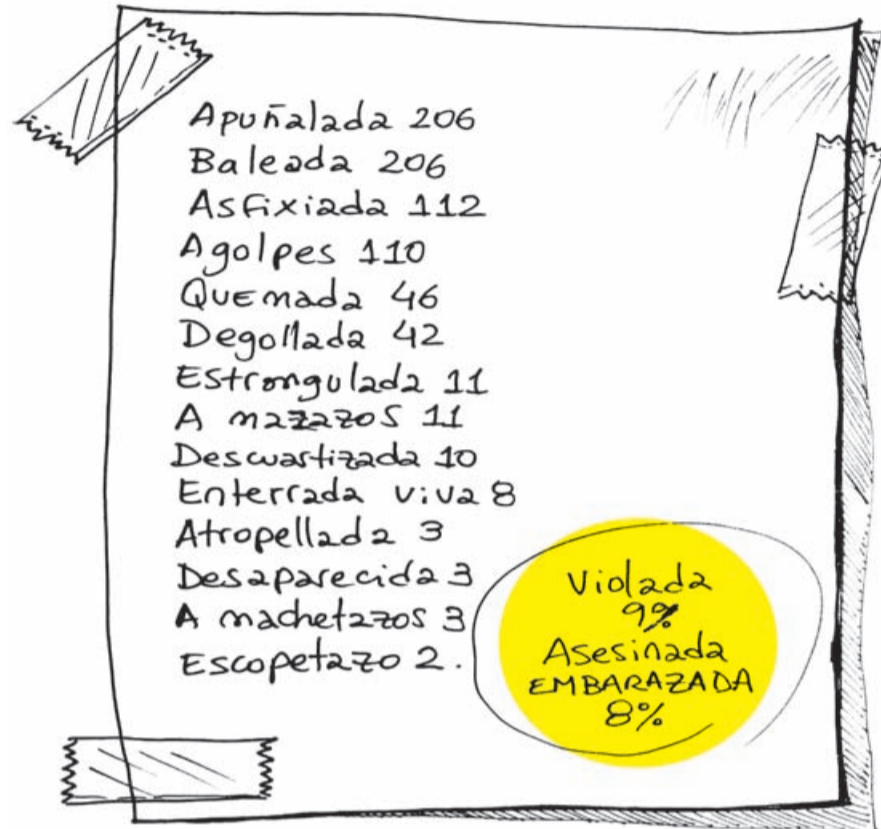 Apuñalada 206
Baleada 206
Asfixiada 112
A golpes 110
Quemada 46
Degollada 42
Estrangulada 11
A mazazos 11
Descuartizada 10
Enterrada viva 8
Atropellada 3
Desaparecida 3
A machetazos 3
Escopetazo 2.
Violada
9%
Asesinada
EMBARAZADA
8%